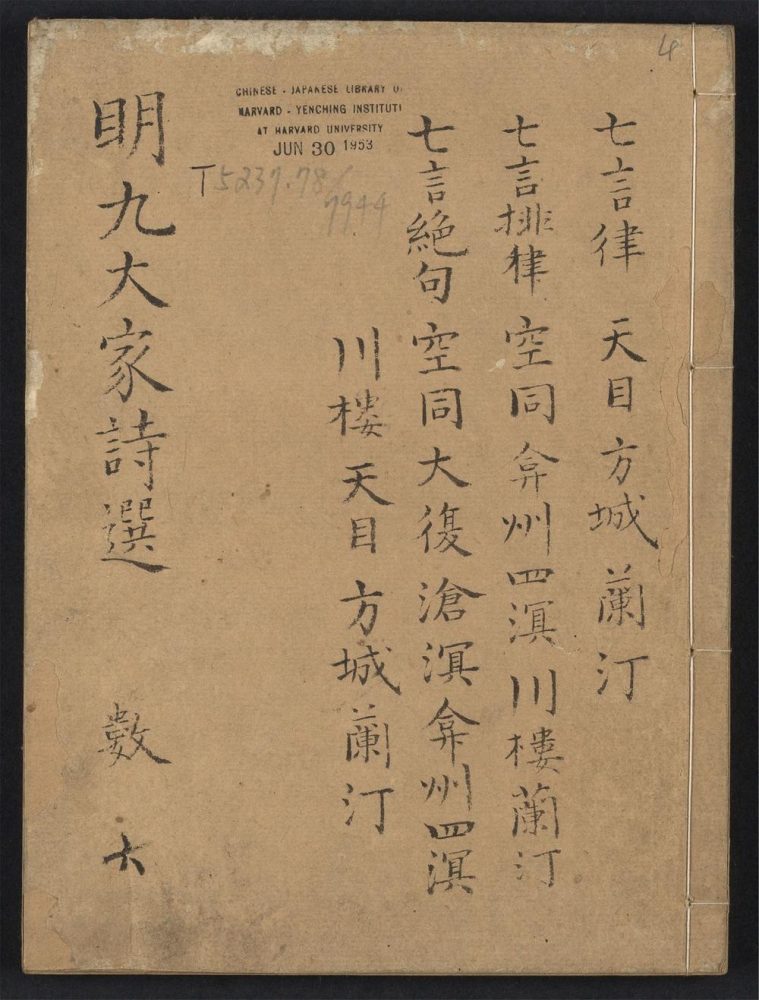 4
七言律 天目 方城 蘭汀
七言排律 空同 弇州 四溟 川樓 蘭汀
七言絶句 空同 大復 滄溟 弇州 四溟
川樓 天目 方城 蘭汀
CHINESE - JAPANESE LIBRARY O
HARVARD - YENCHING INSTITUT
AT HARVARD UNIVERSITY
JUN 30 1953
T5237.78/
7944
明九大家詩選 數 六